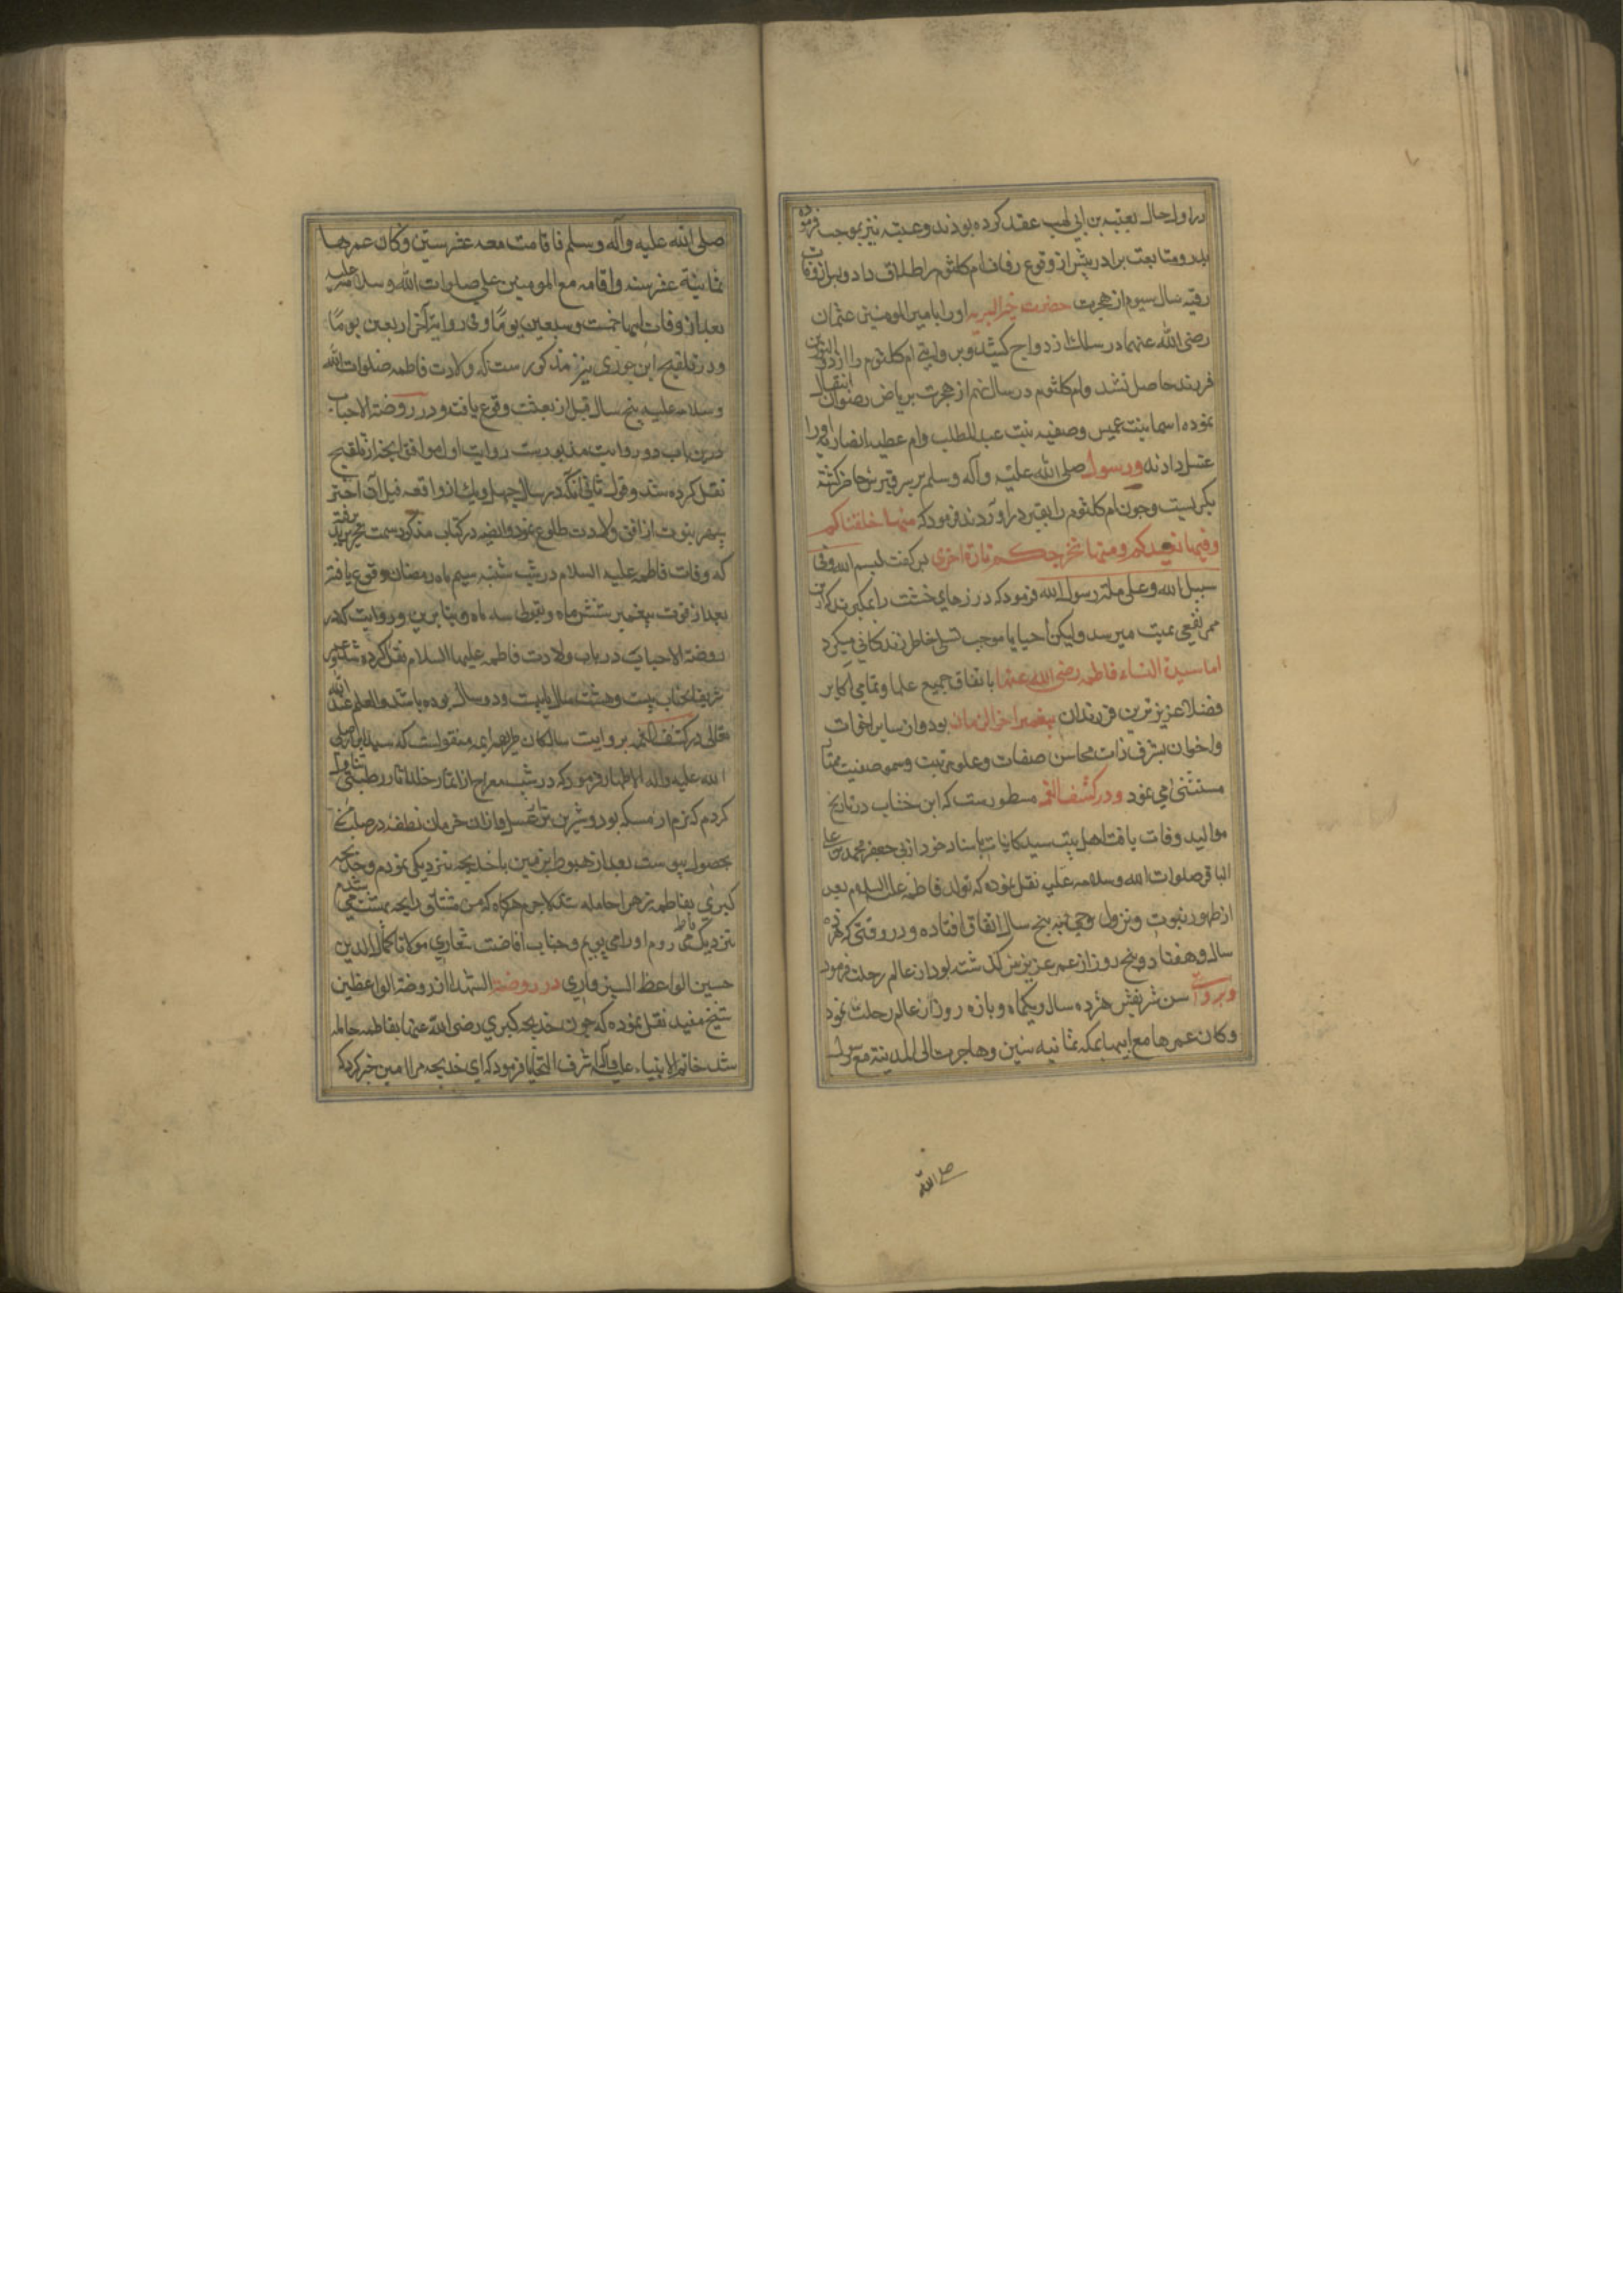 در اول حال بعتبه بن ابی لهب عقد کرده بودند وعتبه نیز بموجب فرموده
پدر ومتابعت برادر پیش از وقوع زفاف ام کلثوم را طلاق داد وبعد از وفات
رقیه سال سیوم از هجرت حضرت خیر البریه او را با امیر المومنین عثمان
رضی الله عنهما در سلک ازدواج کشید وبروایتی ام کلثوم را از ذو النورین
فرزند حاصل نشد وام کلثوم در سال نهم از هجرت بریاض رضوان انتقال
نموده اسما بنت عمیس وصفیه بنت عبد المطلب وام عطیه انصاریه او را
غسل دادند ورسول صلی الله علیه وآله وسلم بر سر قبرش حاضر کشته
بکریست وچون ام کلثوم را بقبر در اوردند فرمود که منها خلقناکم
وفیها نعیدکم ومنها نخرجکم تارة اخری پس کفت بسم الله وفی
سبیل الله وعلی ملة رسول الله فرمود که درزهای خشت را بمکیرند که ازین
ممر نفعی بمیت میرسد ولیکن احیا را موجب تسلی خاطر زندکانی میکردد
اما سیدة النساء فاطمه رضی الله عنها باتفاق جمیع علما وتمامی اکابر
فضلا عزیزترین فرزندان پیغمبر اخر الزمان بود واز سایر اخوات
واخوان بشرف ذات ومحاسن صفات وعلو مرتبت وسمو منقبت ممتاز
مستثنی می نمود ودر کشف الغمه مسطورست که ابن خشاب در تاریخ
موالید ووفات یافت اهل بیت سید کاینات باسناد خود از ابی جعفر محمد بن علی
الباقر صلوات الله وسلامه علیه نقل نموده که تولد فاطمه علیها السلام بعد
از ظهور نبوت ونزول وحی به پنج سال اتفاق افتاده ودر وقتی که هژده
سال وهفتاد وپنج روز از عمر عزیزش کذشته بود از عالم رحلت فرمود
وبروایتی سن شریفش هژده سال ویکماه وپانزده روز از عالم رحلت نمود
وکان عمرها مع ابیها بمکه ثمانیه سنین وهاجرت الی المدینة مع رسول
صلی الله
صلی الله علیه وآله وسلم فاقامت معه عشر سنین وکان عمرها
ثمانیة عشر سنه واقامه مع امیر المومنین علی صلوات الله وسلامه علیه
بعد از وفات ابیها خمست وسبعین یوما وفی روایة آخر اربعین یوما
ودر تلقیح ابن جوزی نیز مذکورست که ولادت فاطمه صلوات الله
وسلامه علیه پنج سال قبل از بعثت وقوع یافت ودر روضة الاحباب
درین باب دو روایت مذبورست روایت اول موافق انچه از تلقیح
نقل کرده شد وقول ثانی آنکه در سال چهل ویک از واقعه فیل آن اختر
سپهر نبوت از افق ولادت طلوع نمود وایضه در کتاب مذکور سمت تحریر پذیرفته
که وفات فاطمه علیه السلام در شب شنبه سیم ماه رمضان وقوع یافته
بعد از فوت پیغمبر بشش ماه وبقولی سه ماه وبنا برین دو روایت که در
روضة الاحباب در باب ولادت فاطمه علیها السلام نقل کرده شد عمر
شریف انجناب بیست وهشت سال یا بیست ودو سال بوده باشد والعلم عند الله
تعالی در کشف الغمه بروایت سالکان طریق ایمه منقولست که سید ابرار صلی
الله علیه واله الاطهار فرمود که در شب معراج از اثمار خلد تناول
کردم که نرم از مسکه بود وشیرین تر از عسل وازان خرمان نطفه در صلب من
بحصول پیوست بعد از هبوط بزمین با خدیجه نزدیکی نمودم وخدیجه
کبری بفاطمه زهرا حامله شد لاجرم هرکاه که من مشتاق رایحه بهشت می شدم
نزدیک فاطمه می روم او را می بویم وجناب افاضت شعاری مولانا کمال الدین
حسین الواعظ السبزواری در روضة الشهدا از روضة الواعظین
شیخ مفید نقل نموده که چون خدیجه کبری رضی الله عنها بفاطمه حامله
شد خاتم الانبیاء علیه وآله شرف التحایا فرمود که ای خدیجه مرا امین خبر کرد که